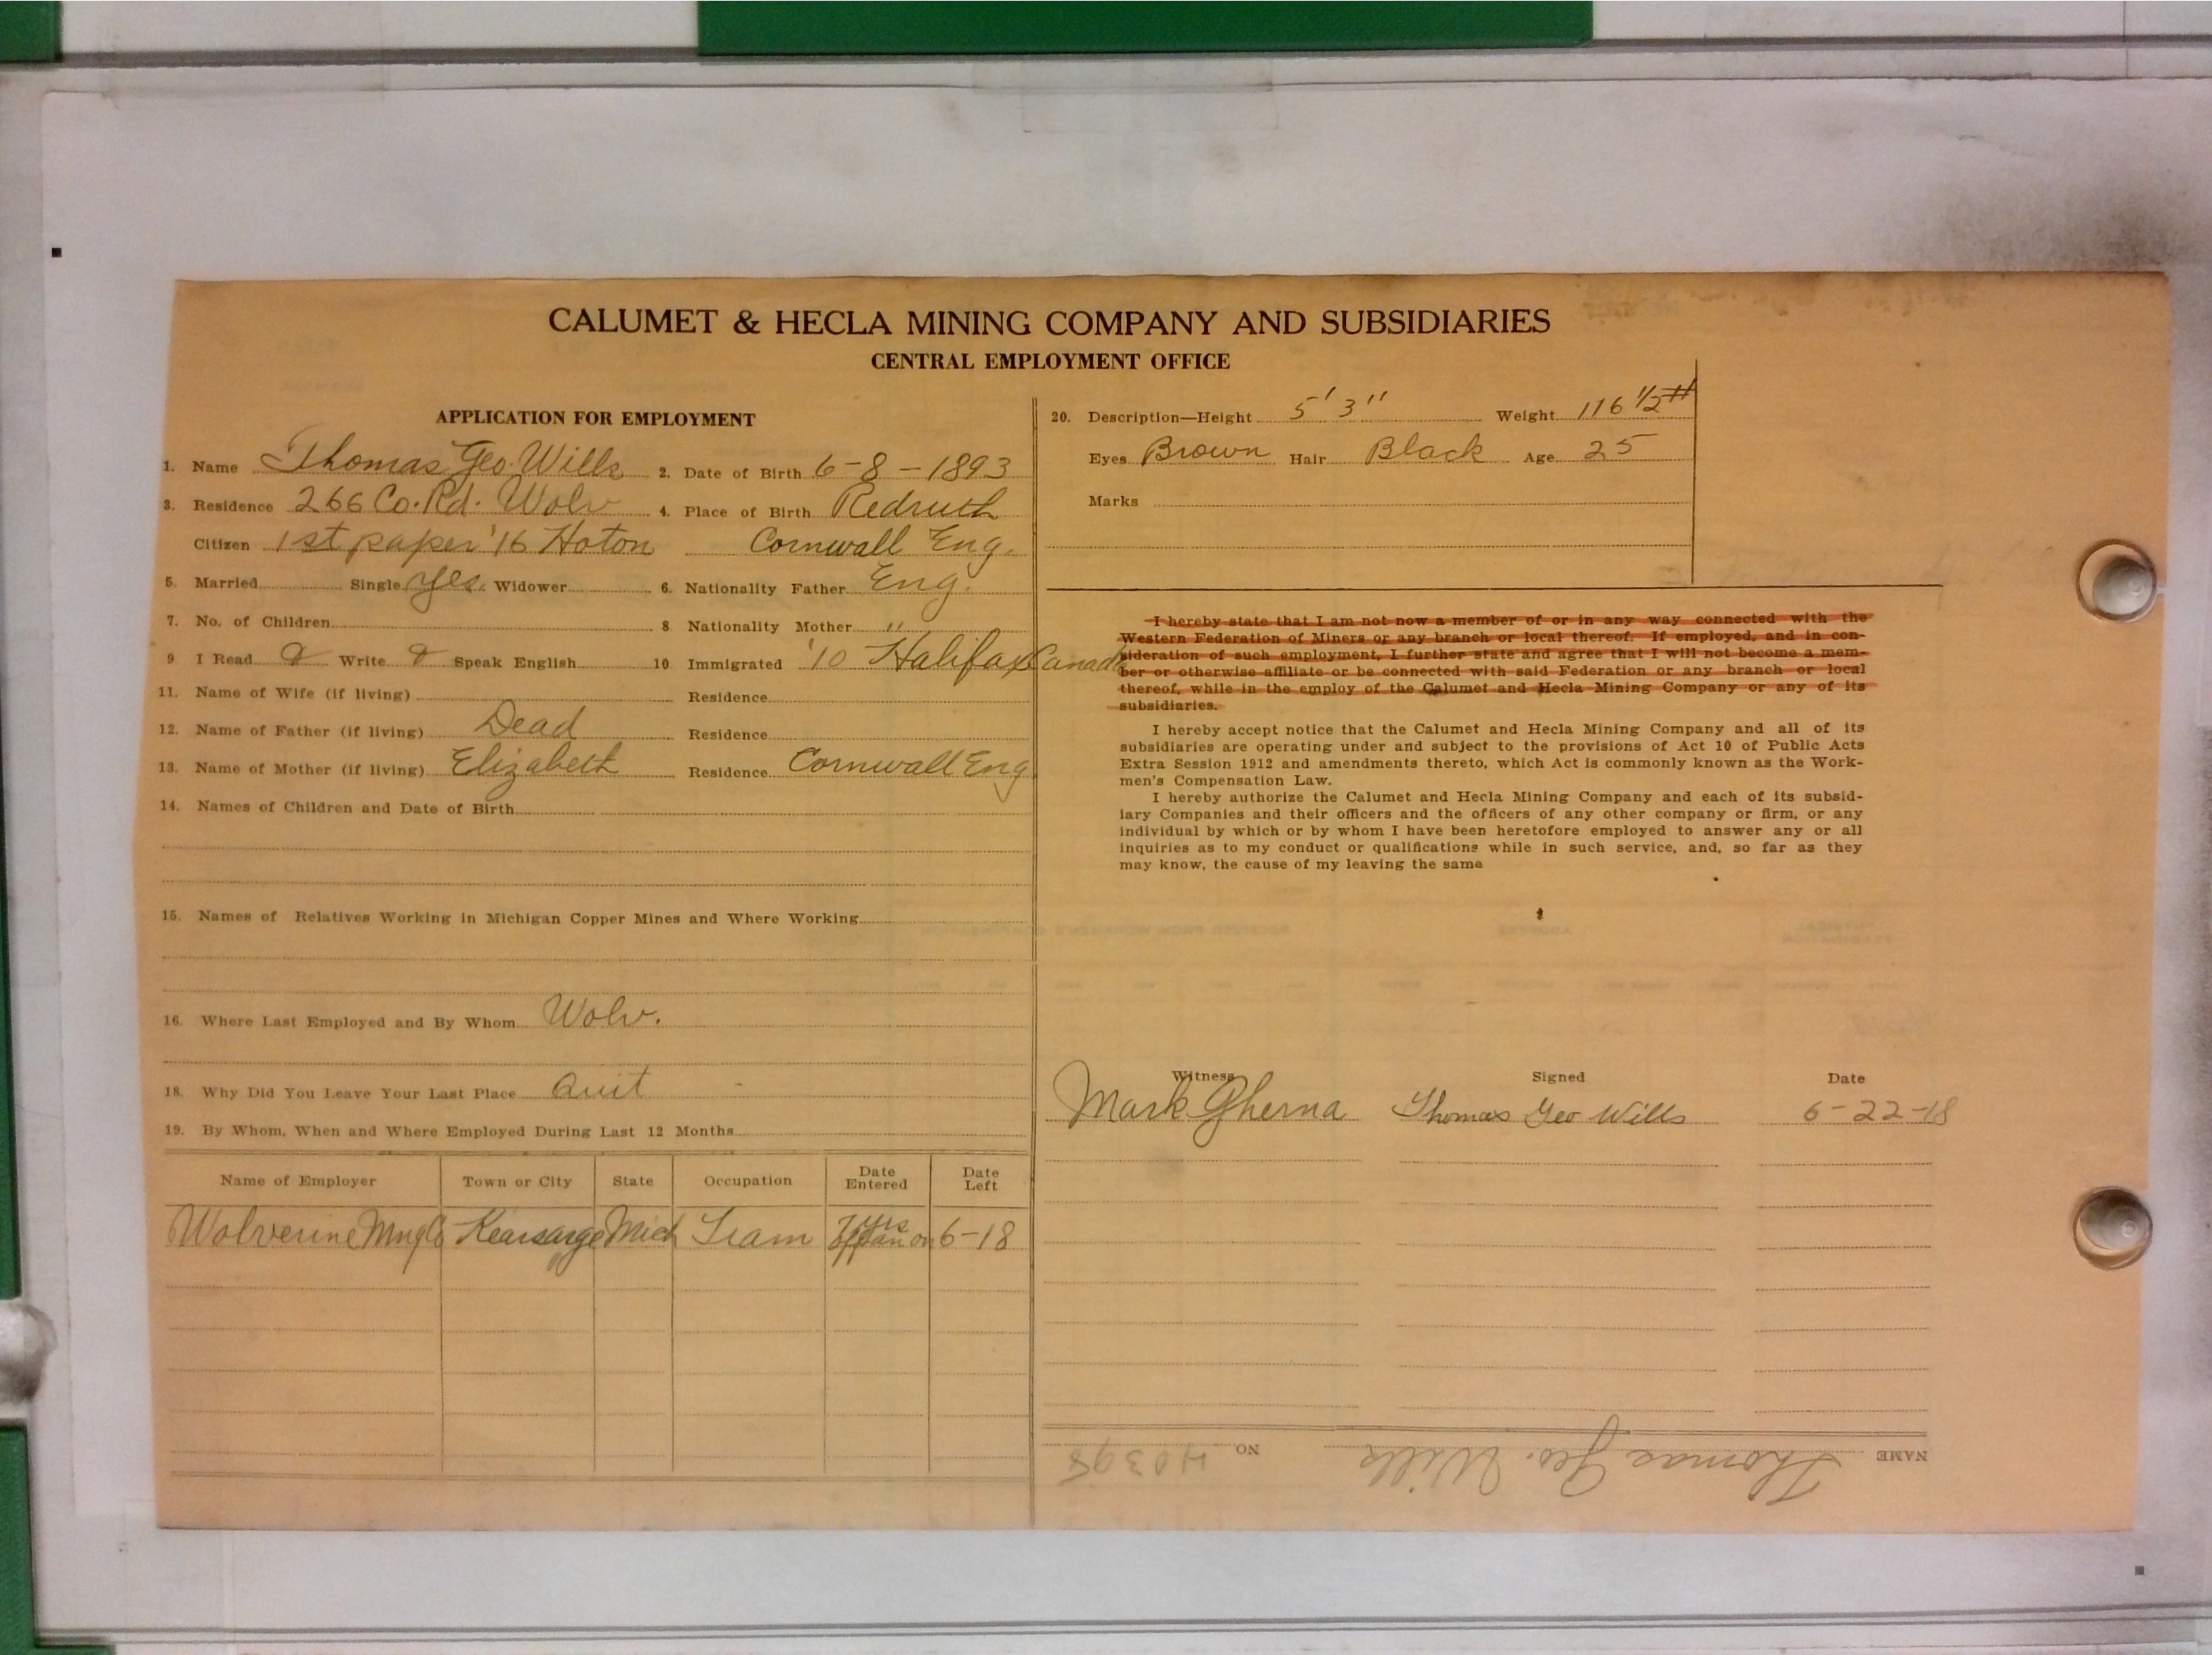 CALUMET & HECLA MINING COMPANY AND SUBSIDIARIES
CENTRAL EMPLOYMENT OFFICE
APPLICATION FOR EMPLOYMENT
1. Name Thomas Geo. Wills 2. Date of Birth 6-8-1893
3. Residence 266 Co. Rd. Wolv 4. Place of Birth Redruth
Citizen 1st paper '16 Hoton Cornwall Eng.
5. Married Single yes. Widower 6. Nationality Father Eng.
7. No. of Children 8 Nationality Mother "
9 I Read Write Speak English 10 Immigrated '10 Halifax Canada
11. Name of Wife (if living) Residence
12. Name of Father (if living) Dead Residence
13. Name of Mother (if living) Elizabeth Residence Cornwall Eng
14. Names of Children and Date of Birth
15. Names of Relatives Working in Michigan Copper Mines and Where Working
16. Where Last Employed and By Whom Wolv.
18. Why Did You Leave Your Last Place Quit
19. By Whom, When and Where Employed During Last 12 Months
Name of Employer Town or City State Occupation Date Entered Date Left
Wolverine Mng Co Kearsarge Mich Tram 6-18
20. Description—Height 5'3" Weight 116 1/2 #
Eyes Brown Hair Black Age 25
Marks
I hereby state that I am not now a member of or in any way connected with the
Western Federation of Miners or any branch or local thereof. If employed, and in con-
sideration of such employment, I further state and agree that I will not become a mem-
ber or otherwise affiliate or be connected with said Federation or any branch or local
thereof, while in the employ of the Calumet and Hecla Mining Company or any of its
subsidiaries.
I hereby accept notice that the Calumet and Hecla Mining Company and all of its
subsidiaries are operating under and subject to the provisions of Act 10 of Public Acts
Extra Session 1912 and amendments thereto, which Act is commonly known as the Work-
men's Compensation Law.
I hereby authorize the Calumet and Hecla Mining Company and each of its subsid-
iary Companies and their officers and the officers of any other company or firm, or any
individual by which or by whom I have been heretofore employed to answer any or all
inquiries as to my conduct or qualifications while in such service, and, so far as they
may know, the cause of my leaving the same
Witness Signed Date
Mark Gherna Thomas Geo Wills 6-22-18
NAME Thomas Geo. Wills NO 40398